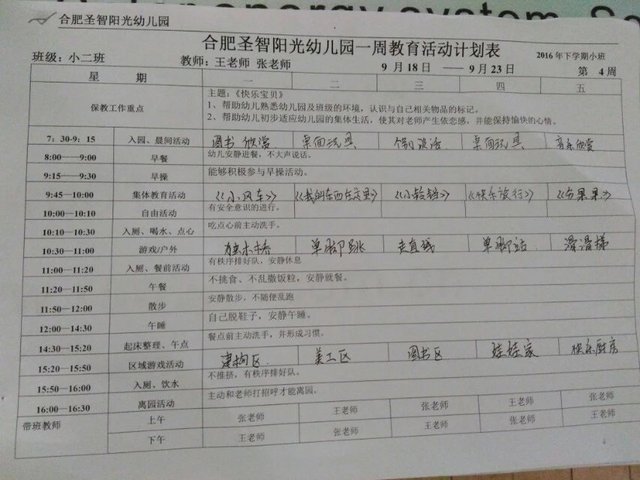 合肥圣智阳光幼儿园
合肥圣智阳光幼儿园一周教育活动计划表
班级：小二班 教师：王老师 张老师 9 月 18 日 —— 9 月 23 日 2016 年下学期小班 第 4 周
星 期 一 二 三 四 五
主题：《快乐宝贝》
保教工作重点 1、帮助幼儿熟悉幼儿园及班级的环境，认识与自己相关物品的标记。
2、帮助幼儿初步适应幼儿园的集体生活，使其对老师产生依恋感，并能保持愉快的心情。
7：30-9：15 入园、晨间活动 图书欣赏 桌面玩具 个别谈话 桌面玩具 音乐欣赏
8:00——9:00 早餐 幼儿安静进餐，不大声说话。
9:15——9:30 早操 能够积极参与早操活动。
9:45——10:00 集体教育活动 《小风车》 《我的东西在这里》 《小铃铛》 《快乐旅行》 《分果果》
10:00——10:10 自由活动 有安全意识的进行。
10:10—10:30 入厕、喝水、点心 吃点心前主动洗手。
10:30—11:00 游戏/户外 独木桥 单脚跳 走直线 单脚站 滑滑梯
11:00—11:20 入厕、餐前活动 有秩序排好队，安静休息
11:20—11:50 午餐 不挑食、不乱撒饭粒，安静就餐。
11:50—12:00 散步 安静散步，不随便乱跑
12:00—14:30 午睡 自己脱鞋子，安静午睡。
14:30—15:20 起床整理、午点 餐点前主动洗手，并形成习惯。
15:20—15:50 区域游戏活动 建构区 美工区 图书区 娃娃家 快乐厨房
15:50—16:00 入厕、饮水 不推挤，有秩序排好队。
16:00—16:30 离园活动 主动和老师打招呼才能离园。
带班教师 上午 张老师 王老师 张老师 王老师 张老师
下午 王老师 张老师 王老师 张老师 王老师